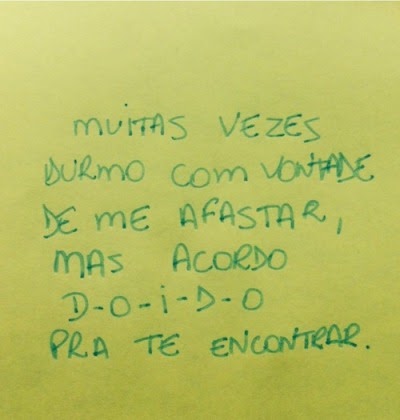 MUITAS VEZES
DURMO COM VONTADE
DE ME AFASTAR,
MAS ACORDO
D-O-I-D-O
PRA TE ENCONTRAR.